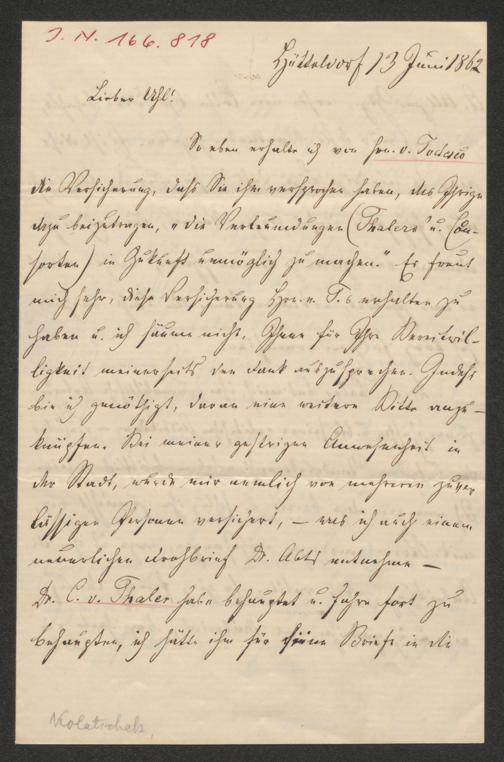 J. N. 166.818
Hütteldorf 13 Juni 1862
Lieber Uhl!
So eben erhalte ich von Hrn. v. Todesco
die Versicherung, daß Sie ihm versprochen haben, das Ihrige
dazu beizutragen, "die Verleumdungen (Thalers u. Con-
sorten) in Zukunft unmöglich zu machen." Es freut
mich sehr, diese Versicherung Hrn. v. T.s erhalten zu
haben u. ich säume nicht, Ihnen für Ihre Bereitwil-
ligkeit meinerseits den Dank auszusprechen. Indeß
bin ich genöthigt, daran eine weitere Bitte anzu-
knüpfen. Bei meiner gestrigen Anwesenheit in
der Stadt, wurde mir nemlich von mehreren zuver
lässigen Personen versichert, – was ich auch einem
neuerlichen Drohbrief Dr. Abts entnehme –
Dr. C. v. Thaler habe behauptet u. fahre fort zu
behaupten, ich hätte ihm für seine Briefe in die
Kolatschek,